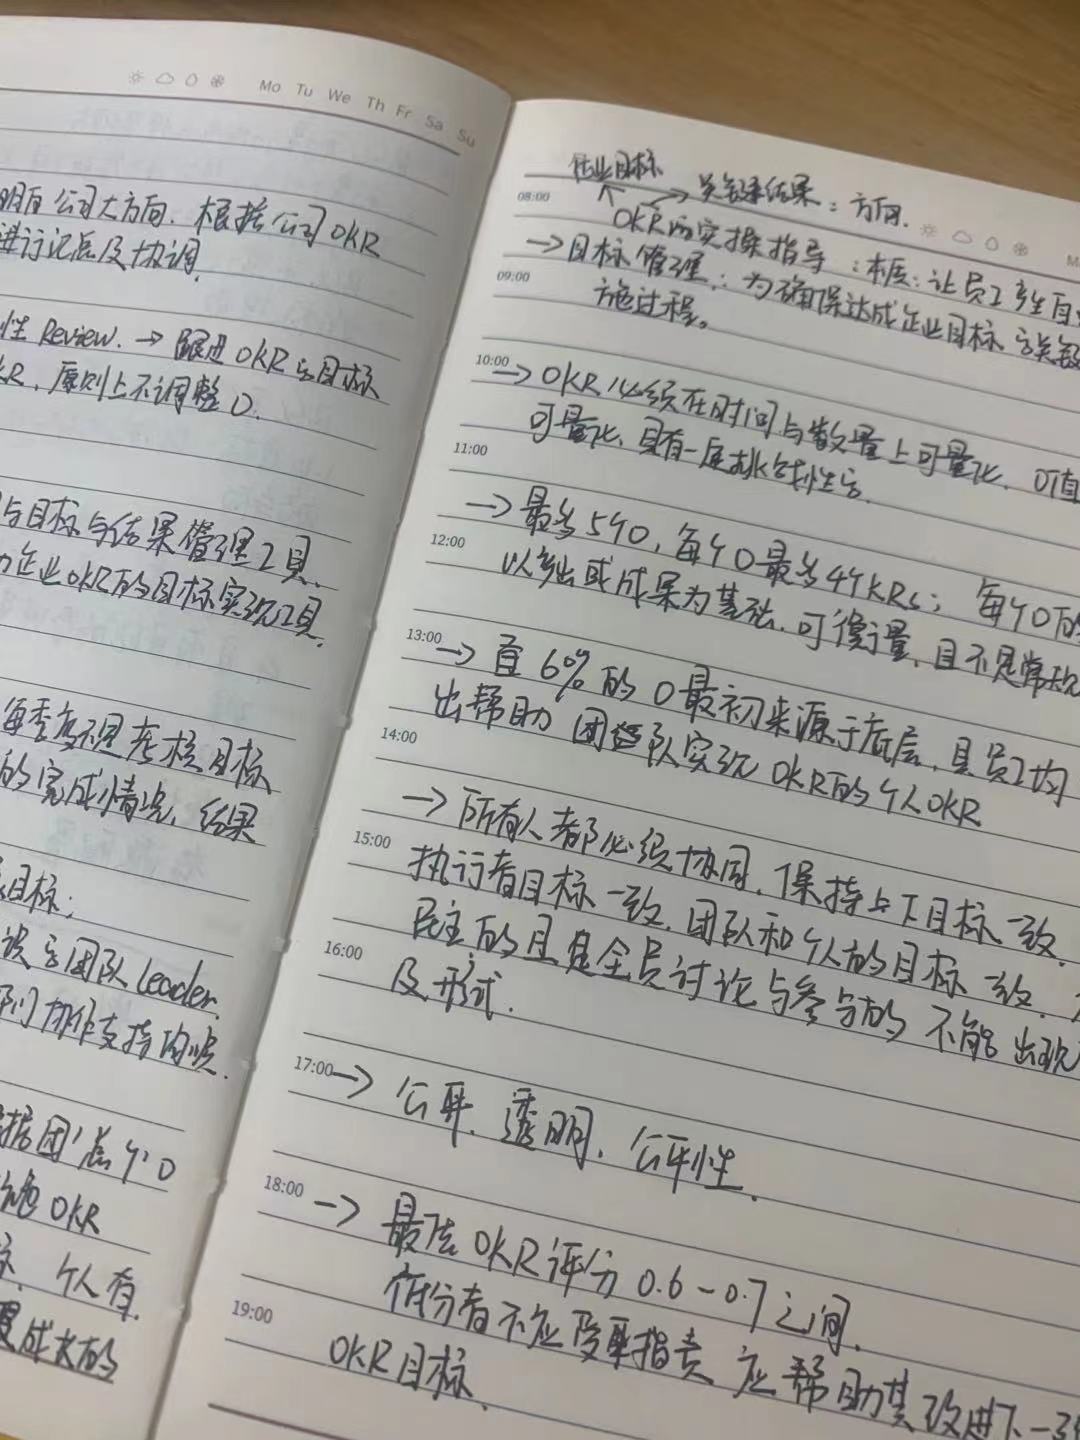 Mo Tu We Th Fr Sa Su
明白公司大方向. 根据公司OKR
进行记忘及协调.
性 Review. → 跟进 OKR 与目标
KR, 原则上不调整 O.
与目标与结果管理工具.
企业OKR的目标实现工具.
每季度不是考核目标
的完成情况, 结果
目标;
谈与团队 leader.
部门协作支持的业.
O
OKR
个人有.
度成长的
企业目标
→ 关键结果: 方向.
08:00
OKR的实操指导: 本质: 让员工产生自
→ 目标管理: 为确保达成企业目标与关键
09:00
施过程。
10:00
→ OKR必须在时间与数量上可量化. 可直
可量化. 具有一定挑战性与.
11:00
→ 最多5个O, 每个O最多4个KRs; 每个O的
12:00
以产出或成果为基础. 可衡量, 且不是常规
13:00
→ 至60%的O最初来源于底层. 且员工均
出帮助 团队实现 OKR的个人OKR
14:00
→ 所有人都必须协同. 保持上下目标一致.
15:00
执行者目标一致. 团队和个人的目标一致.
民主的且是全员讨论与参与的 不能出现
16:00
及形式.
17:00
→ 公开. 透明. 公平性.
18:00
→ 最佳OKR评分 0.6-0.7之间.
低分者不应受到指责 应帮助其改进下一
19:00
OKR目标.